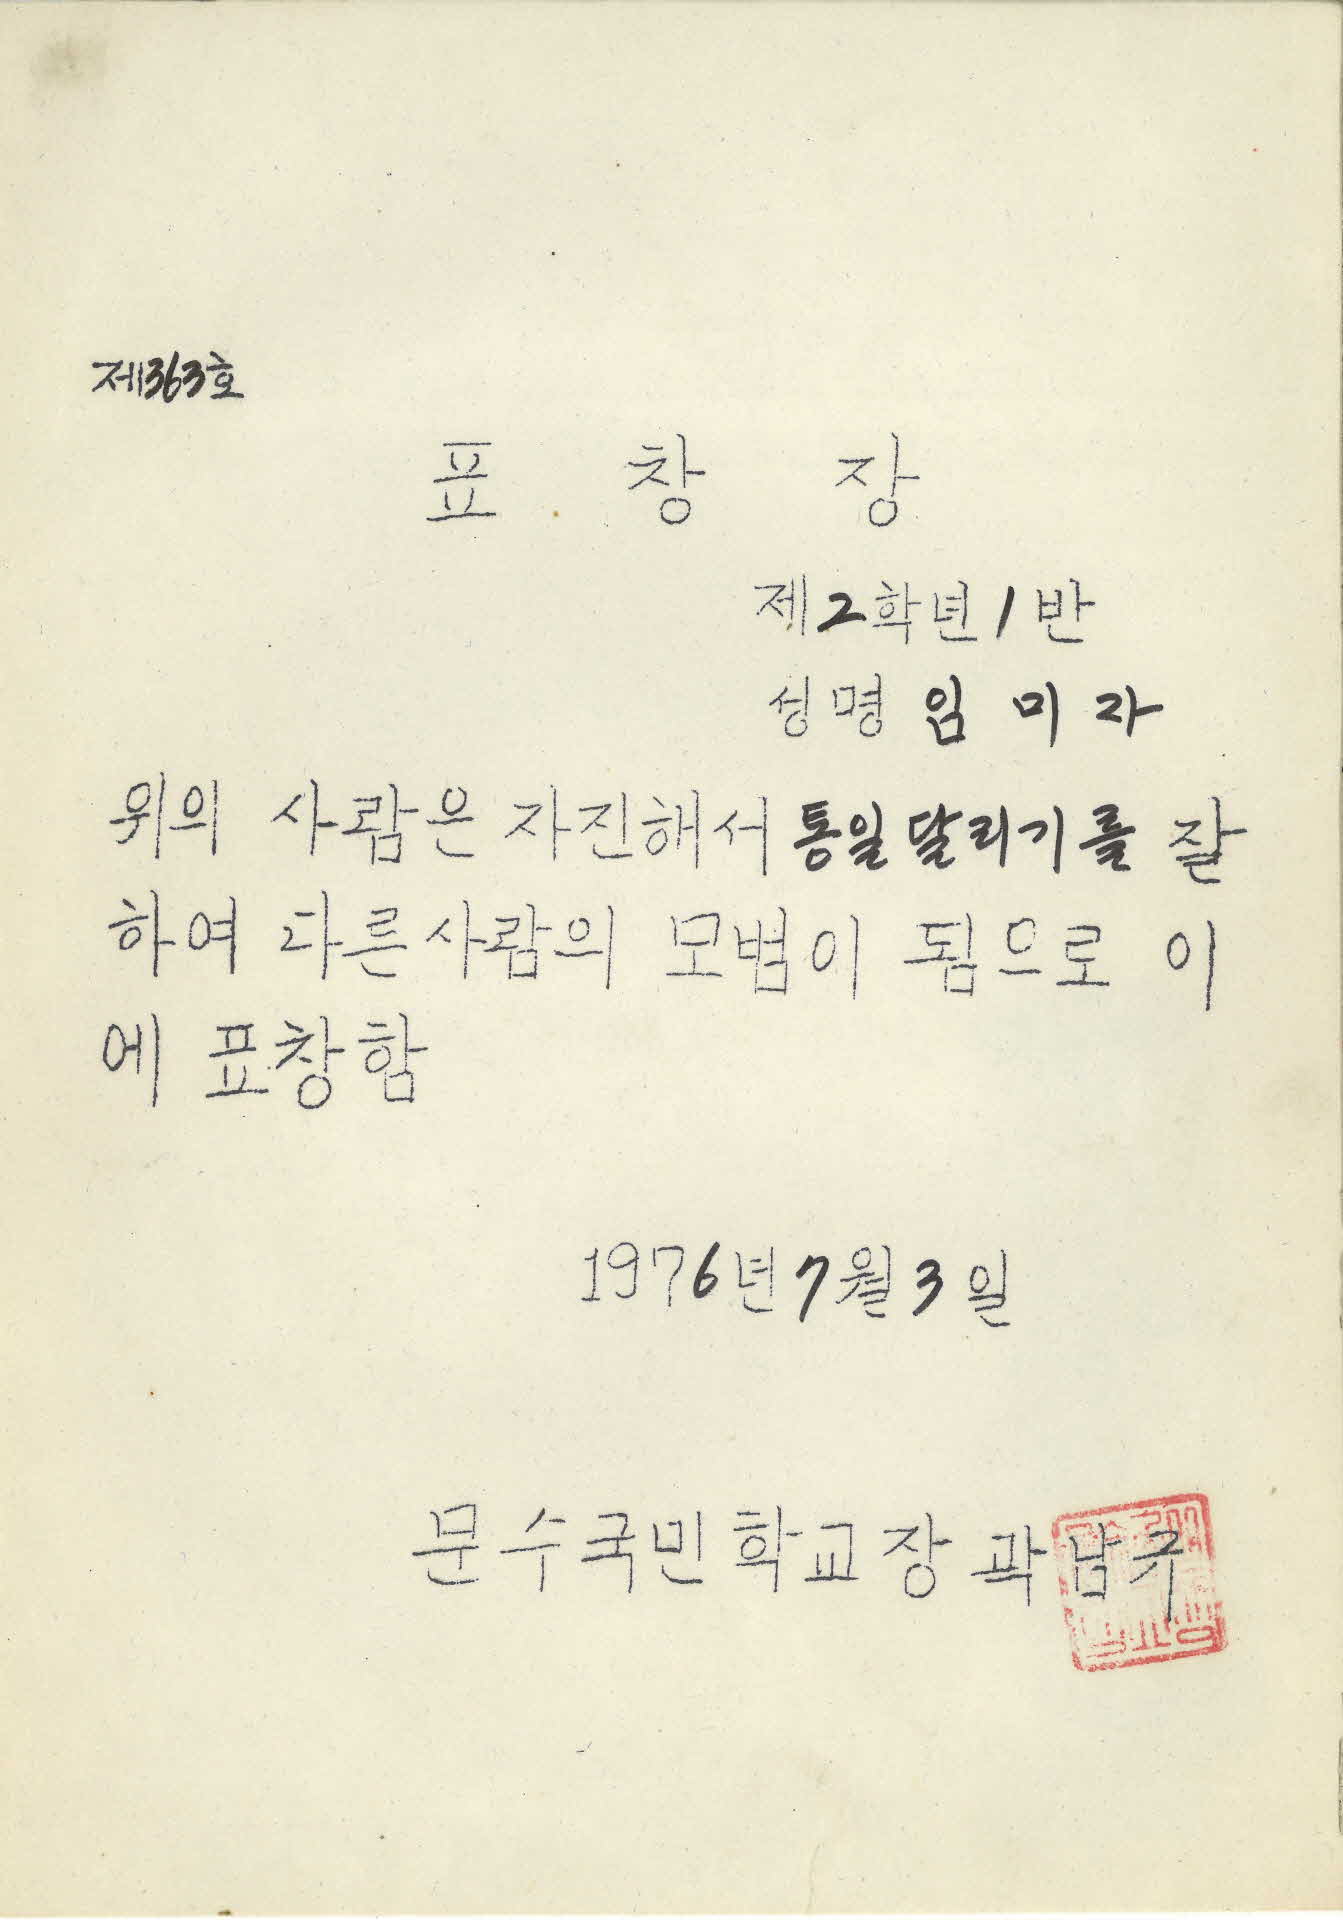 제363호
표 창 장
제2학년1반
성명 임 미 자
위의 사람은 자진해서 통일달리기를 잘
하여 다른사람의 모범이 됨으로 이
에 표창함
1976년7월3일
문수국민학교장 곽남규